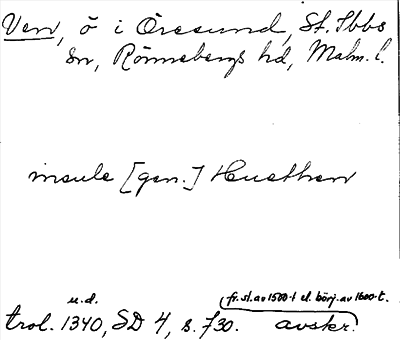 Ven, ö i Öresund, St. Ibbs
sn, Rönnebergs hd, Malm. l.
insule [gen.] Huethen
u.d.
fr. sl. av 1500-t el. börj. av 1600-t.
trol. 1340, SD 4, s. 730. avskr.